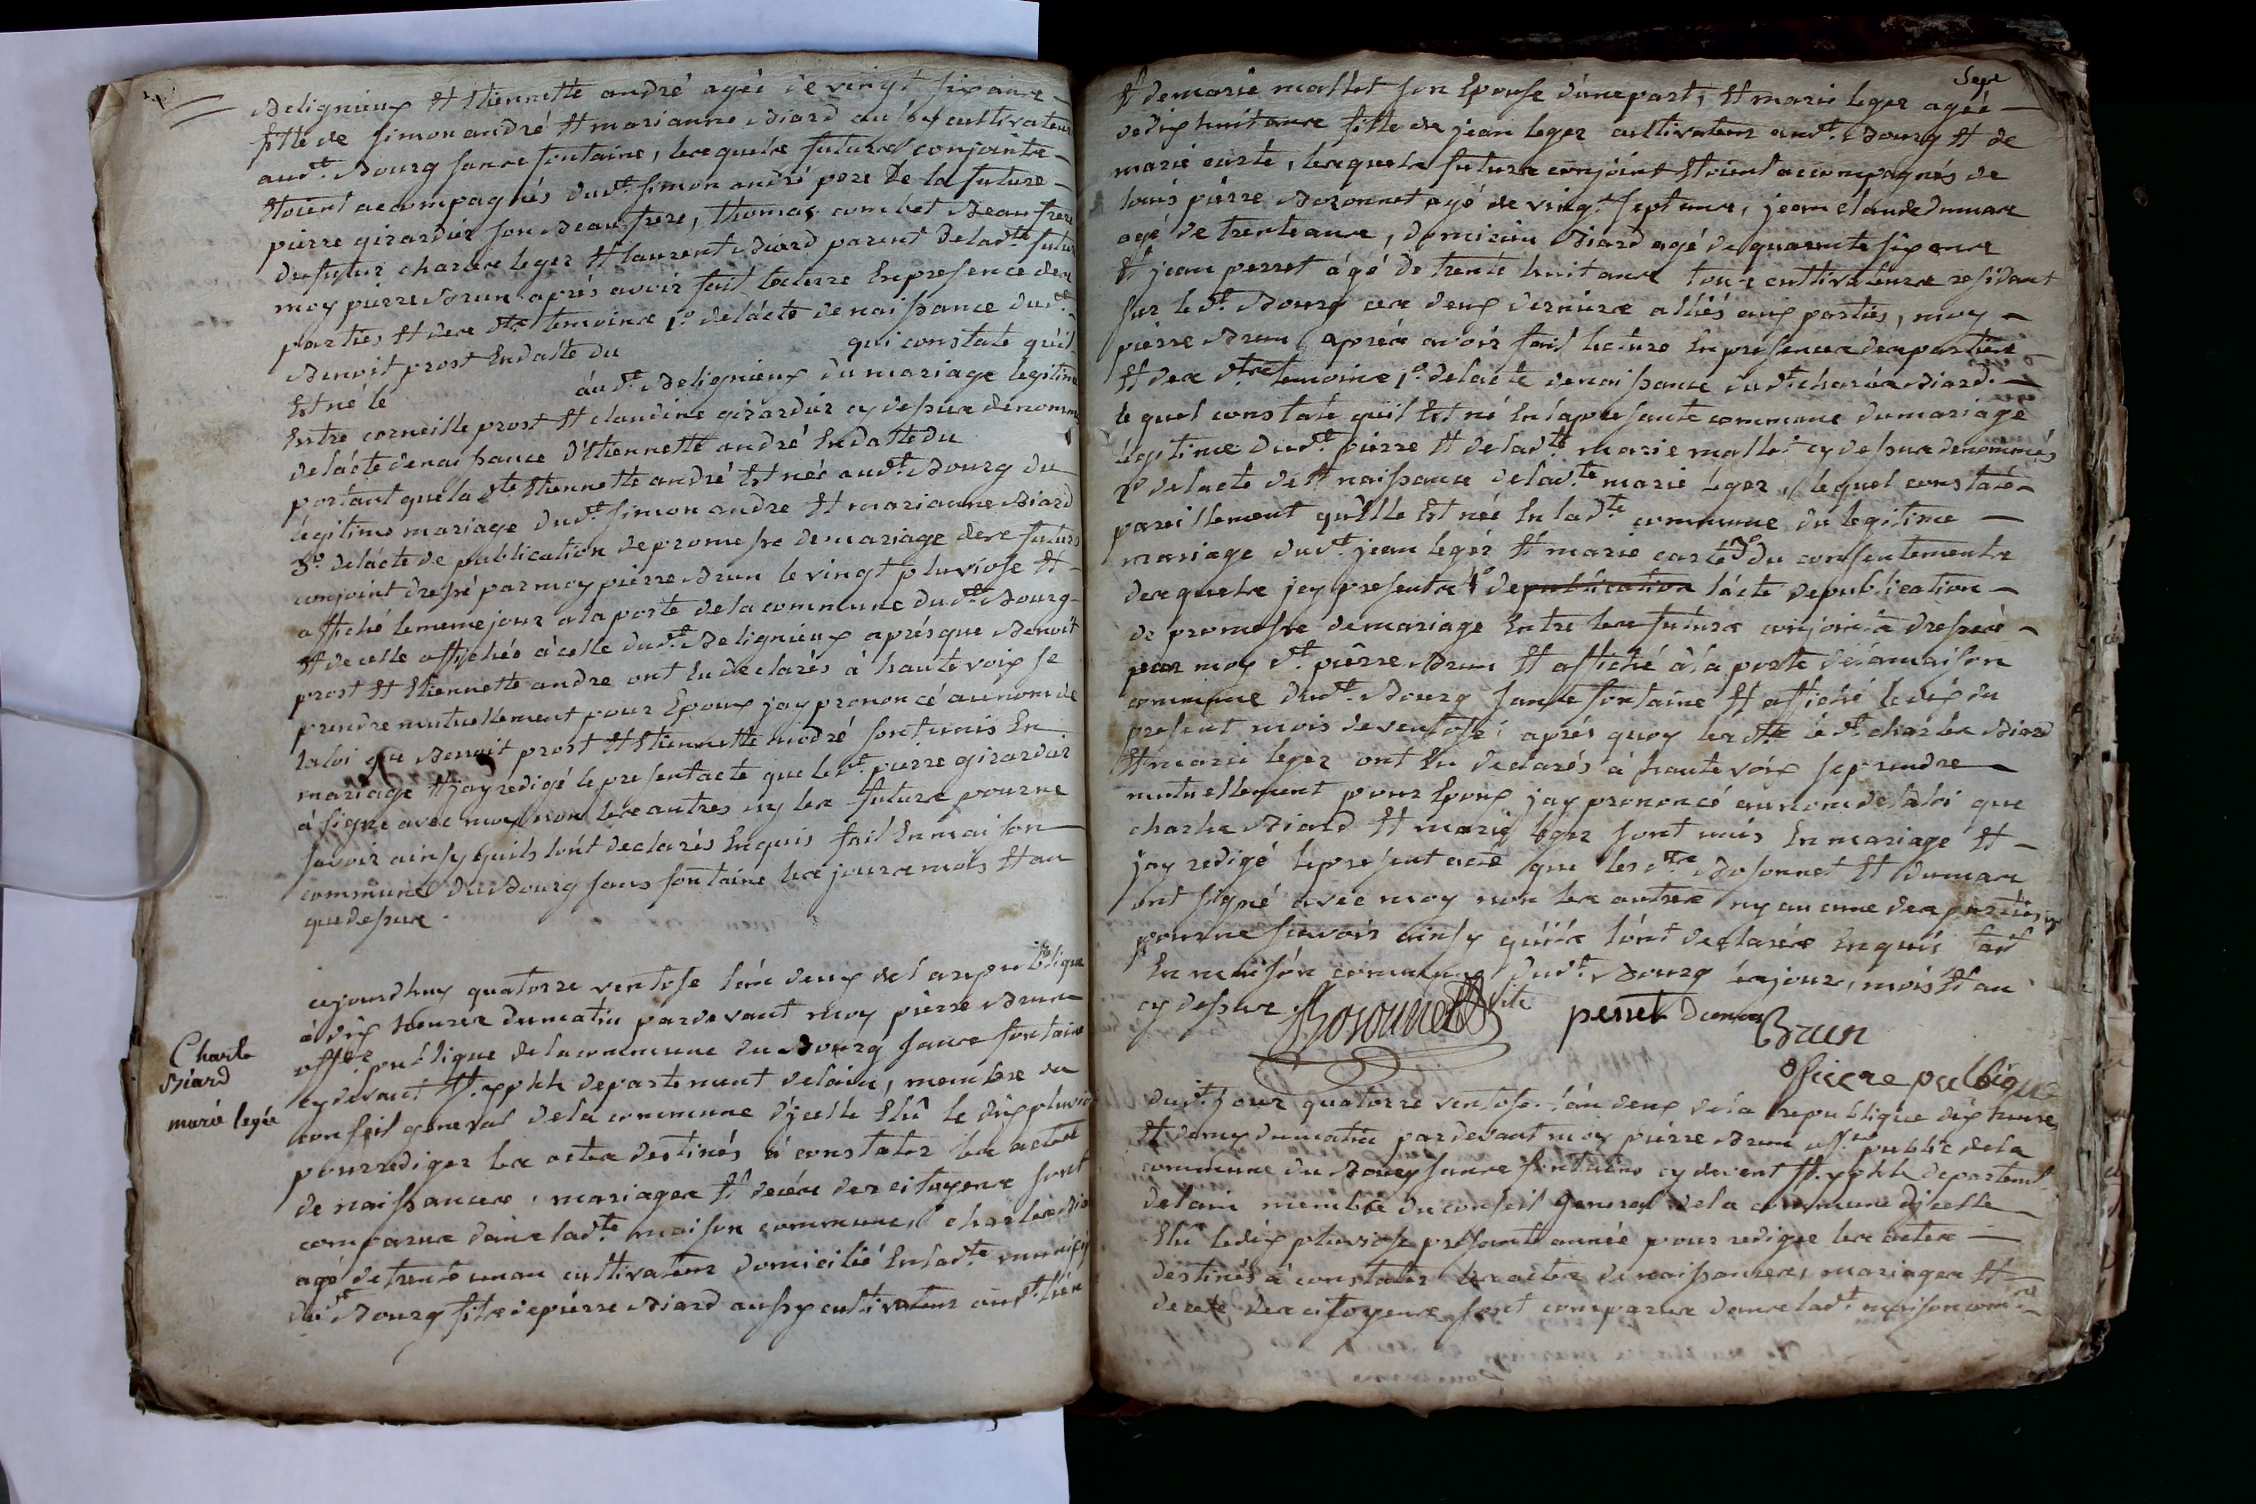 Belignieux et Etiennette andré agée de vingt six ans
fille de simon andré et marianne Biard aussy cultivateur
aud.t Bourg sans fontaine, lesquels futurs conjoints
Etoient accompagnés dud.t simon andré pere de la future
pierre girardier son Beaufrere, thomas combet Beaufrere
du futur charles leger et laurent Biard parent de lad.te future
moy pierre Brun aprés avoir fait lecture En presence des
parties et des d.ts temoins 1.o de lácte de naissance dud.t
Benoit prost En datte du qui constate qu'il
Est né le áud.t Beligneux du mariage legitime
Entre corneille prost et claudine girardier cy dessus dénommé
de lácte de naissance d'Etiennette andré En datte du
portant que la d.te Etiennette andré Est neé aud.t Bourg du
legitime mariage dud.t simon andre et marianne Biard
3.o de lácte de publication de promesse de mariage des futurs
conjoint dressé par moy pierre Brun le vingt pluviose et
affiché le meme jour a la porte de la commune dud.t Bourg
et de celle affichée á celle dud.t Beligneux aprés que Benoit
prost et Etiennette andre ont Eu declarés à haute voix se
prendre mutuellement pour Epoux jay prononcé au nom de
la loi que Benoit prost et Etiennette andré sont unis En
mariage et jay redigé le present acte que led.t pierre girardier
á signé avec moy non les autres ny les futurs pour ne
savoir ainsy quils lónt declarés Enquis fait En maison
commune du Bourg sans fontaine les jours mois et an
que dessus.
Charle
Biard
marie legér
aujourdhuy quatorze ventose lán deux de la republique
á dix heures du matin pardevant moy pierre Brun
off.er publique de la commune du Bourg sans fontaine
cy devant St. xpphle departement de lain, membre du
conseil general de la commune d'jcelle Elû le dix pluviose
pour rediger les actes destinés á constater les actes
de naissances, mariages et decés des citoyens sont
comparus dans lad.te maison commune, charles Biard
agé de trente un an cultivateur domicilié En lad.te municip
dud.t Bourg fils de pierre Biard aussy cultivateur aud.t lieu
Sept
et de marie mallet son Epouse d'une part, et marie leger ageé
de dix huit ans fille de jean leger cultivateur aud.t Bourg et de
marie carte, lesquels futurs conjoint Etoient accompagnés de
louis pierre Bozonnet agé de vingt sept ans, jean claude dumas
agé de trente ans, Biard agé de quarante six ans
et jean perret ágé de trente huit ans tous cultivateurs residant
sur le d.t Bourg ces deux derniers alliés aux parties, moy
pierre Brun aprés avoir fait lecture En presence des parties
et des d.ts temoins 1.o de lacte de naissance dud.t charles Biard
lequel constate quil Est né En la presente commune du mariage
légitime dud.t pierre et de lad.te marie mallet cy dessus denommés
2.o de lacte de naissance de lad.te marie leger, lequel constate
pareillement qu'Elle Est neé En lad.te commune du legitime
mariage dud.t jean legér et marie carte 3.o du consentement
desquels jcy presents 4.o de publication lácte de publication
de promesse de mariage Entre les futurs conjoints dresseé
par moy d.t pierre Brun et affiché á la porte de la maison
commune dud.t Bourg sans fontaine et affiché le dix du
present mois de ventose, aprés quoy les d.ts le d.t charles Biard
et marie leger ont Eu declarés á haute voix se prendre
mutuellement pour Epoux jay prononcé au nom de la loi que
charles Biard et marie leger sont unis En mariage et
jay redigé le present acte que les d.ts Bosonnet et dumas
ont signé avec moy non les autres ny aucune des parties
pour ne savoir ainsy quils lónt declarés Enquis fait
En maisón commune dud.t Bourg les jour, mois et an
cy dessus.
Bosonnet perret Dumas Brun
officiere publique
dud.t jour quatorze ventose lán deux de la republique dix heures
et demy du matin pardevant moy pierre Brun off.er public de la
commune du Bourg sans fontaine cy devent St. xpphle departemt
de lain membre du conseil general de la commune djcelle
Elû le dix pluviose présente année pour rediger les actes
destinés á constater les actes de naissances, mariages et
decés des citoyens sont comparus dans lad.te maison com.ne